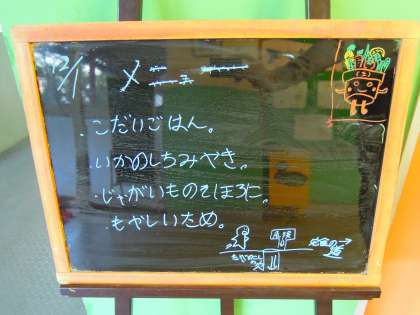 12/1 メニュー
・こだいごはん。
・いかのしちみやき。
・じゃがいものそぼろに。
・もやしいため。